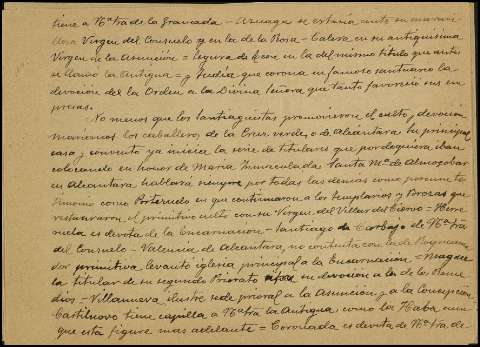 tiene a Nª Sra de la Granada - Azuaga se extasia ante su maravi-
llosa Virgen del Consuelo y en la de la Rosa - Calera en su antiquisima
Virgen de la Asunción = Segura de Leon en la del mismo titulo que antes
se llamó la Antigua = y Tudia que corona en famoso santuario la
devoción de la Orden a la Divina Señora que tanto favoreció sus em-
presas.
No menos que los santiaguistas promovieron el culto y devoción
marianos los caballeros de la Cruz verde, o de Alcantara. Su principal
casa y convento ya inicia la serie de titulares que por doquiera iban
colocando en honor de Maria Inmaculada. Santa Mª de Almocobar
en Alcantara hablará siempre por todas las demás como perenne tes-
timonio como Portezuelo en que continuaron a los templarios y Brozas que
restauraron el primitivo culto con su Virgen del Villar del Ciervo = Herre-
ruela es devota de la Encarnacion = Santiago de Carbajo de Nª Sra
del Consuelo - Valencia de Alcantara, no contenta con la de Roqueama-
dor primitiva levantó iglesia principal a la Encarnación = Magacela
la titular de su segundo Priorato su devoción a la de los Reme-
dios = Villanueva ilustre sede prioral a la Asunción y a la Concepción
Castilnovo tiene capilla a Nª Sra la Antigua, como la Haba aun-
que esta figure mas adelante = Coronada es devota de Nª Sra de